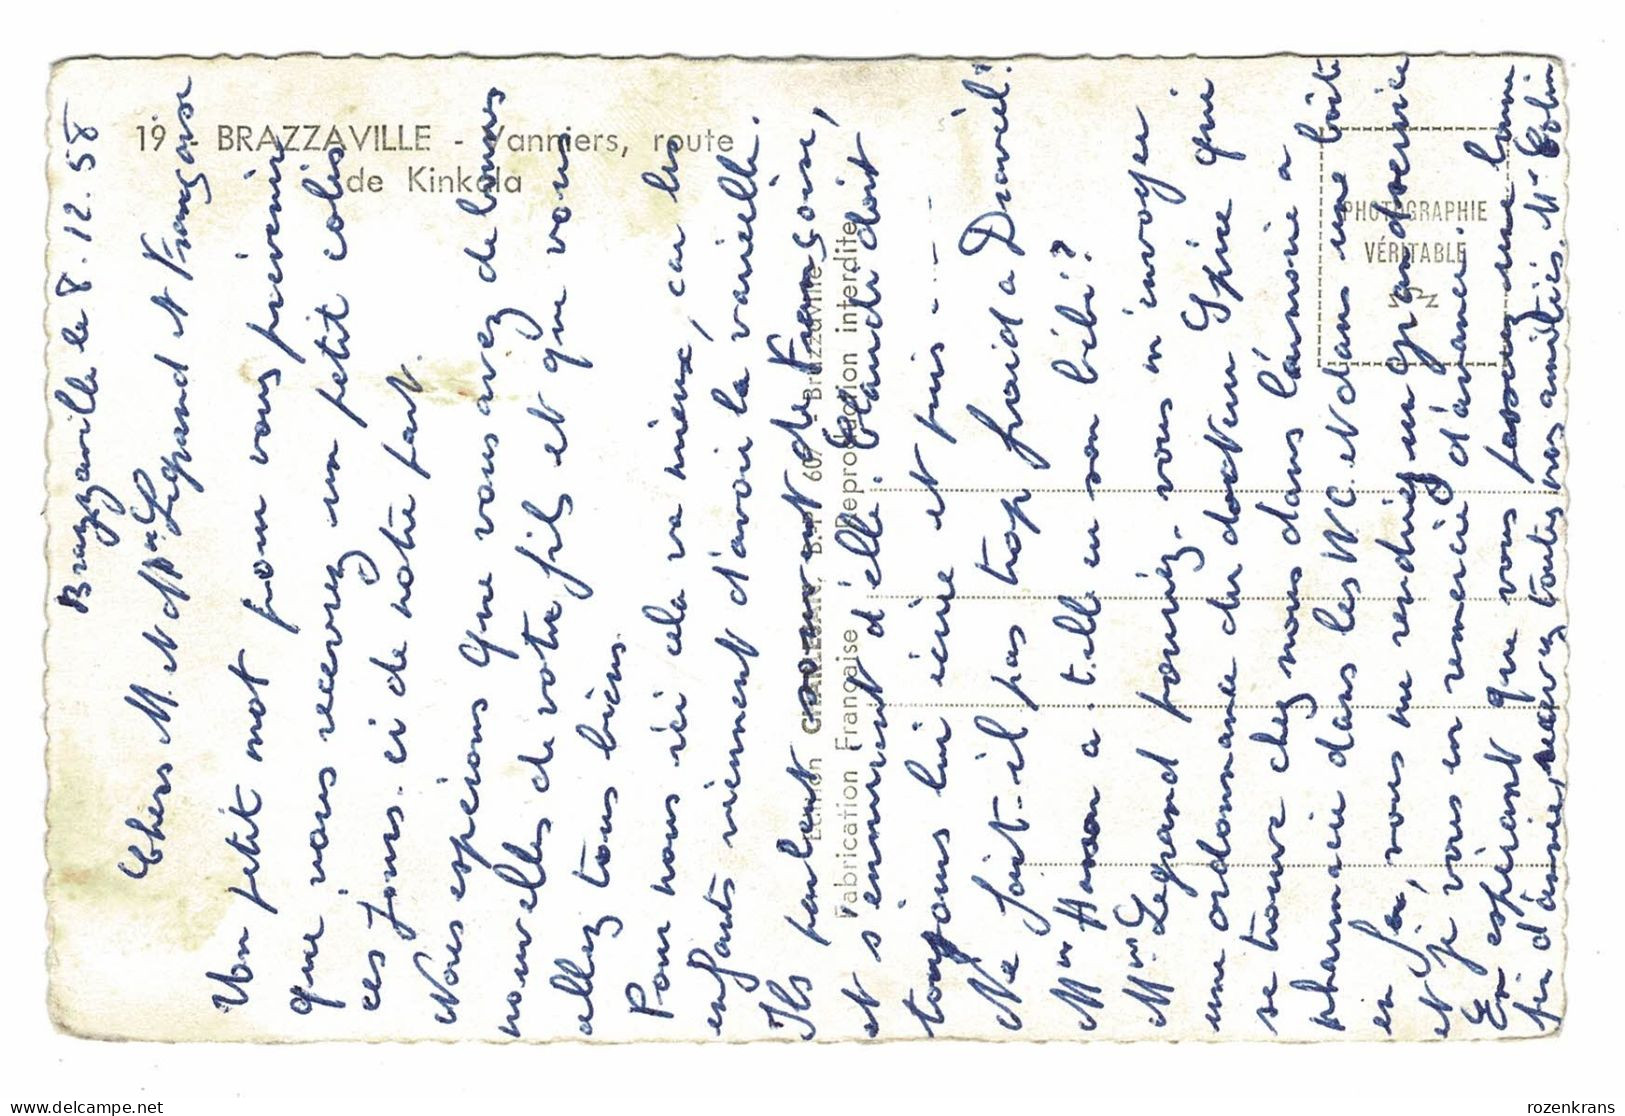 19 - BRAZZAVILLE - Vanniers, route
de Kinkala
PHOTOGRAPHIE
VÉRITABLE
Edition B.P. 607 - Brazzaville
Fabrication Française Reproduction interdite
Brazzaville le 8.12.58
Chers M. et Mme Legrand et Françoise
Un petit mot pour vous prévenir
que vous recevrez un petit colis
ces jours-ci de notre part.
Nous espérons que vous avez de bonnes
nouvelles de votre fils et que vous
allez tous bien.
Pour nous ici cela va mieux, car les
enfants viennent d'avoir la varicelle.
Ils parlent souvent de Françoise,
et s'ennuient d'elle. Il faudrait
toujours lui écrire et puis ...
Ne fait-il pas trop froid à Draveil?
Mme a-t-elle eu son bébé?
Mme Legrand pourriez-vous m'envoyer
une ordonnance du docteur Spire qui
se trouve chez nous dans l'armoire à
pharmacie dans les WC. et dans une boîte
en fer, vous me rendriez un grand service
et je vous en remercie d'avance.
En espérant que vous passerez une bonne
fin d'année, recevez toutes nos amitiés. Mme
rozenkrans